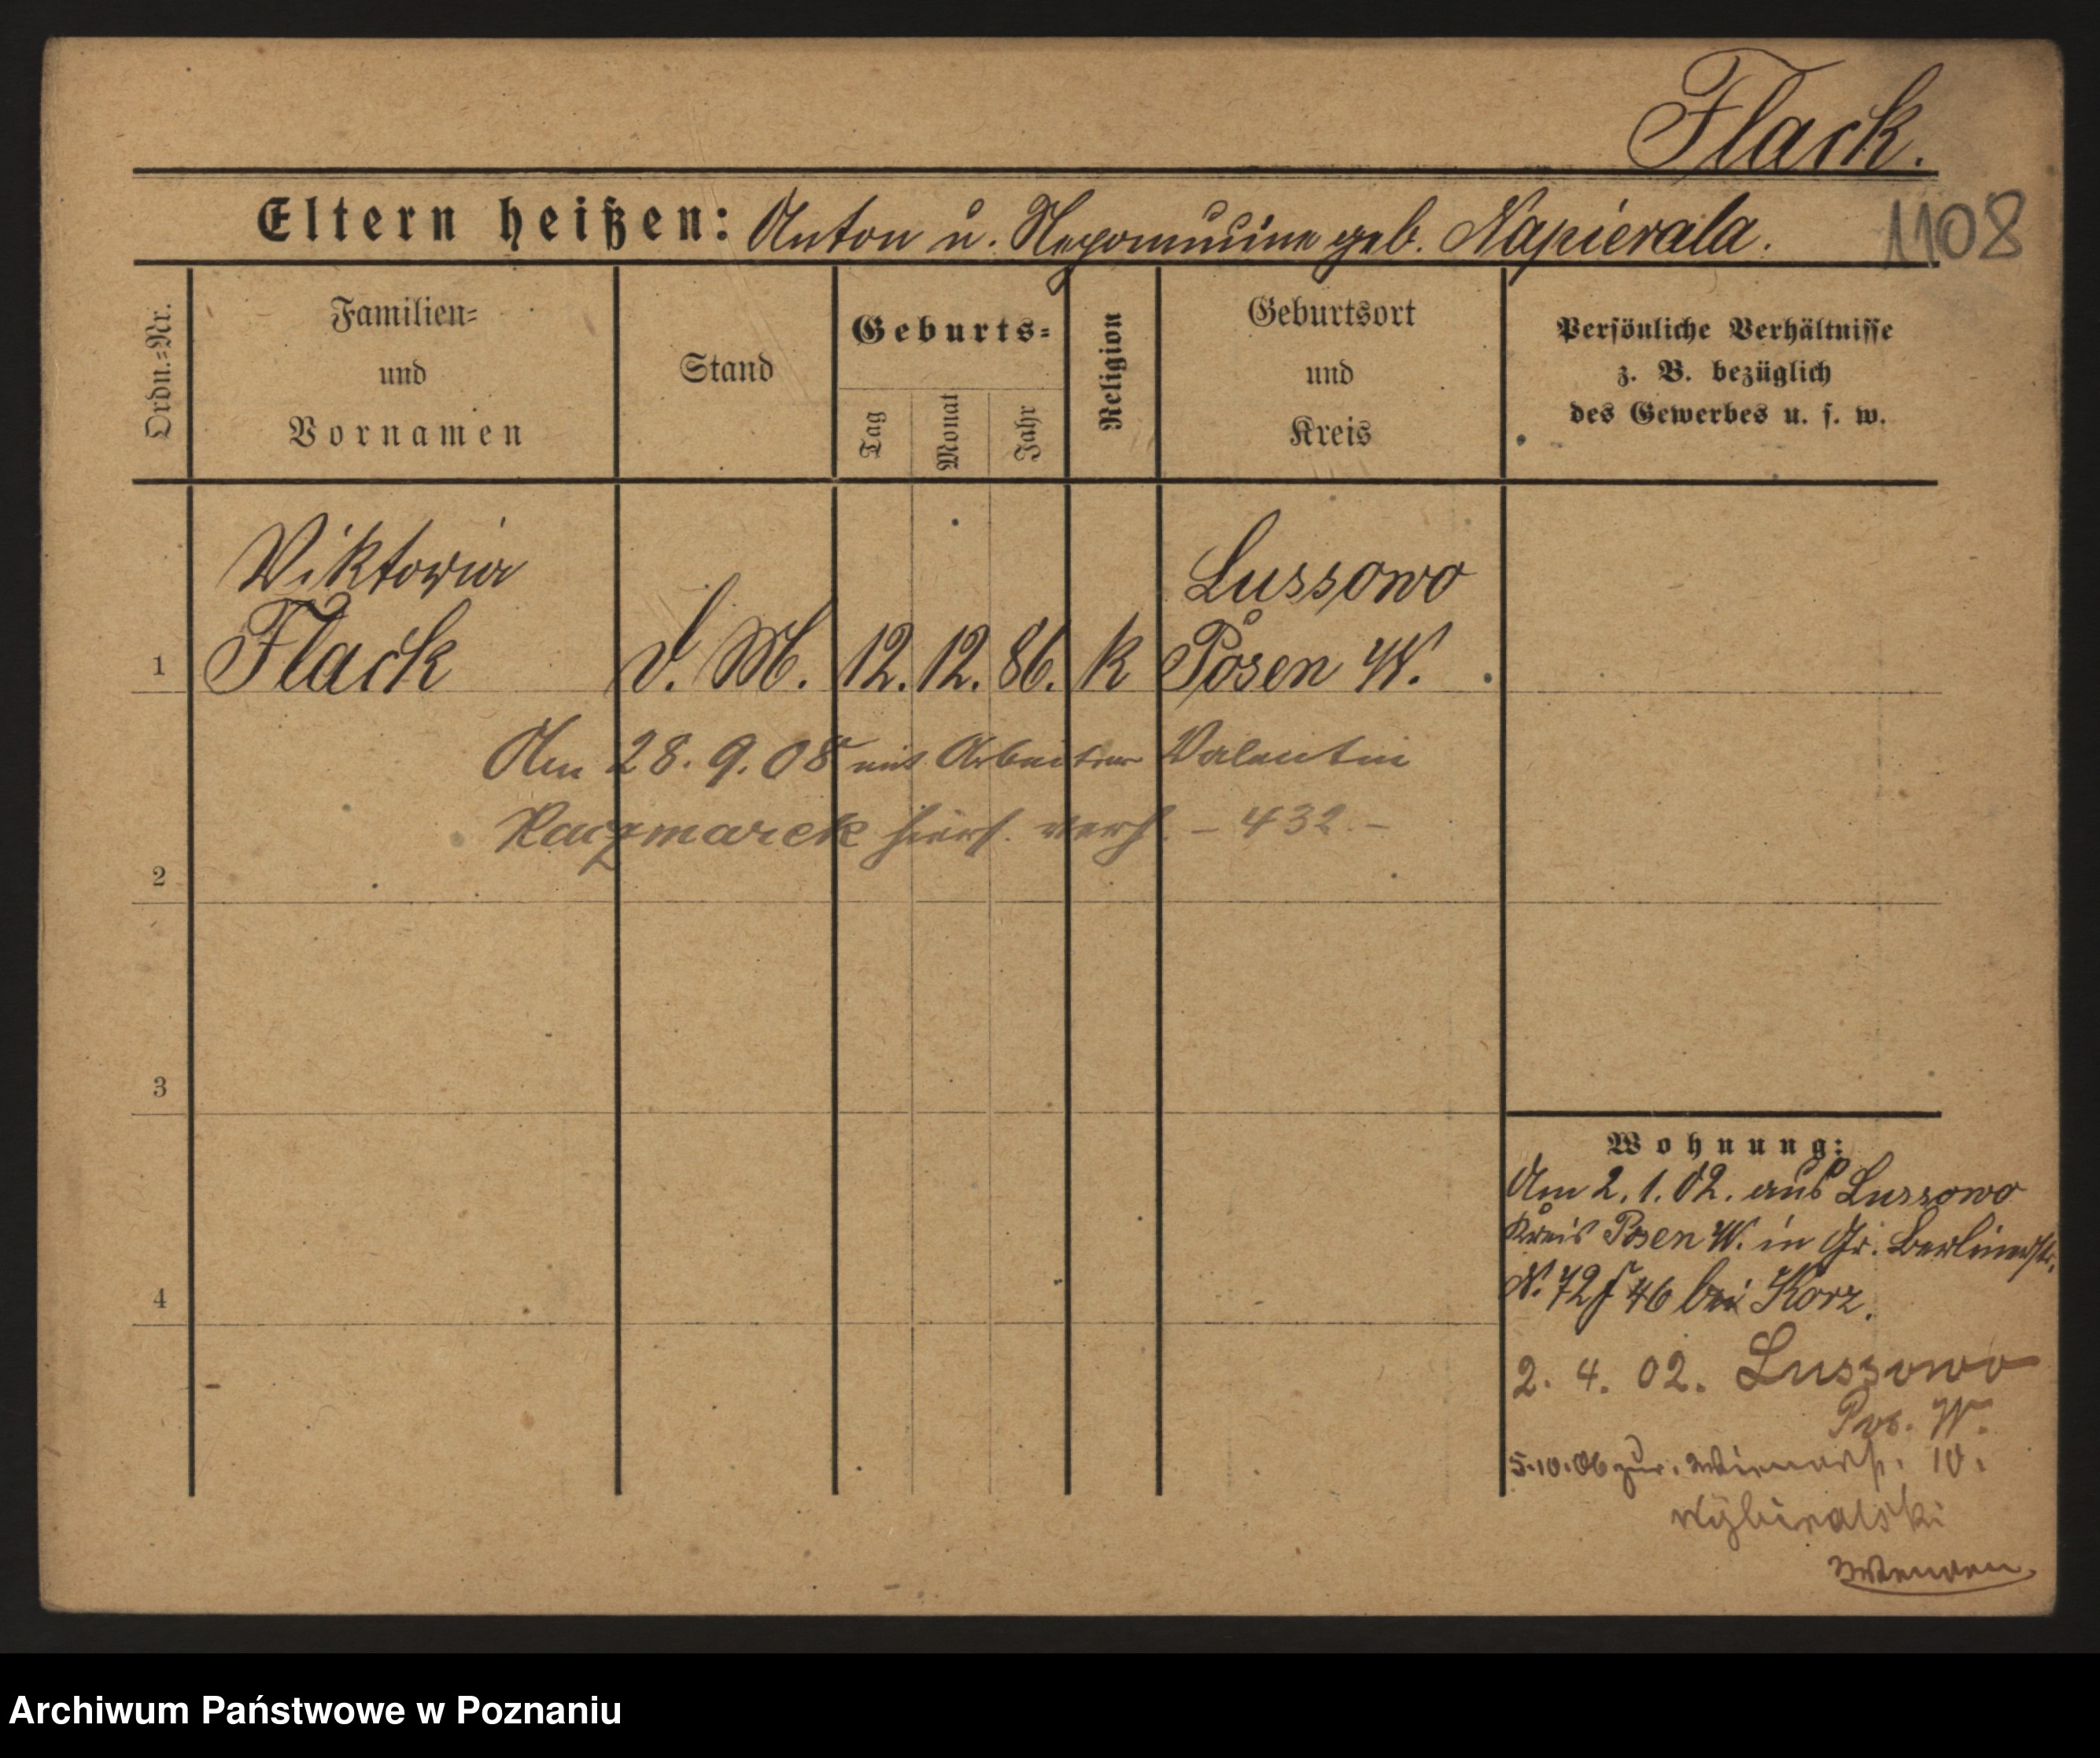 Flack.
Eltern heißen: Anton u. Nepomucina geb. Napierala.
1108
Ordn.-Nr.
Familien-
und
Vornamen
Stand
Geburts-
Tag
Monat
Jahr
Religion
Geburtsort
und
Kreis
Persönliche Verhältnisse
z. B. bezüglich
des Gewerbes u. s. w.
Viktoria
Lussowo
1 Flack d. M. 12. 12. 86. k Posen W.
Am 28. 9. 08 mit Arbeiter Valentin
Kaczmarek hiers. verh. - 432 -
2
3
4
Wohnung:
Am 2. 1. 02. aus Lussowo
Kreis Posen W. in Gr. Berlinerstr.
N. 72 46 bei Korz.
2. 4. 02. Lussowo
Pos. W.
5.10.06 zur. 10.
Wybieralski
Wenden.
Archiwum Państwowe w Poznaniu